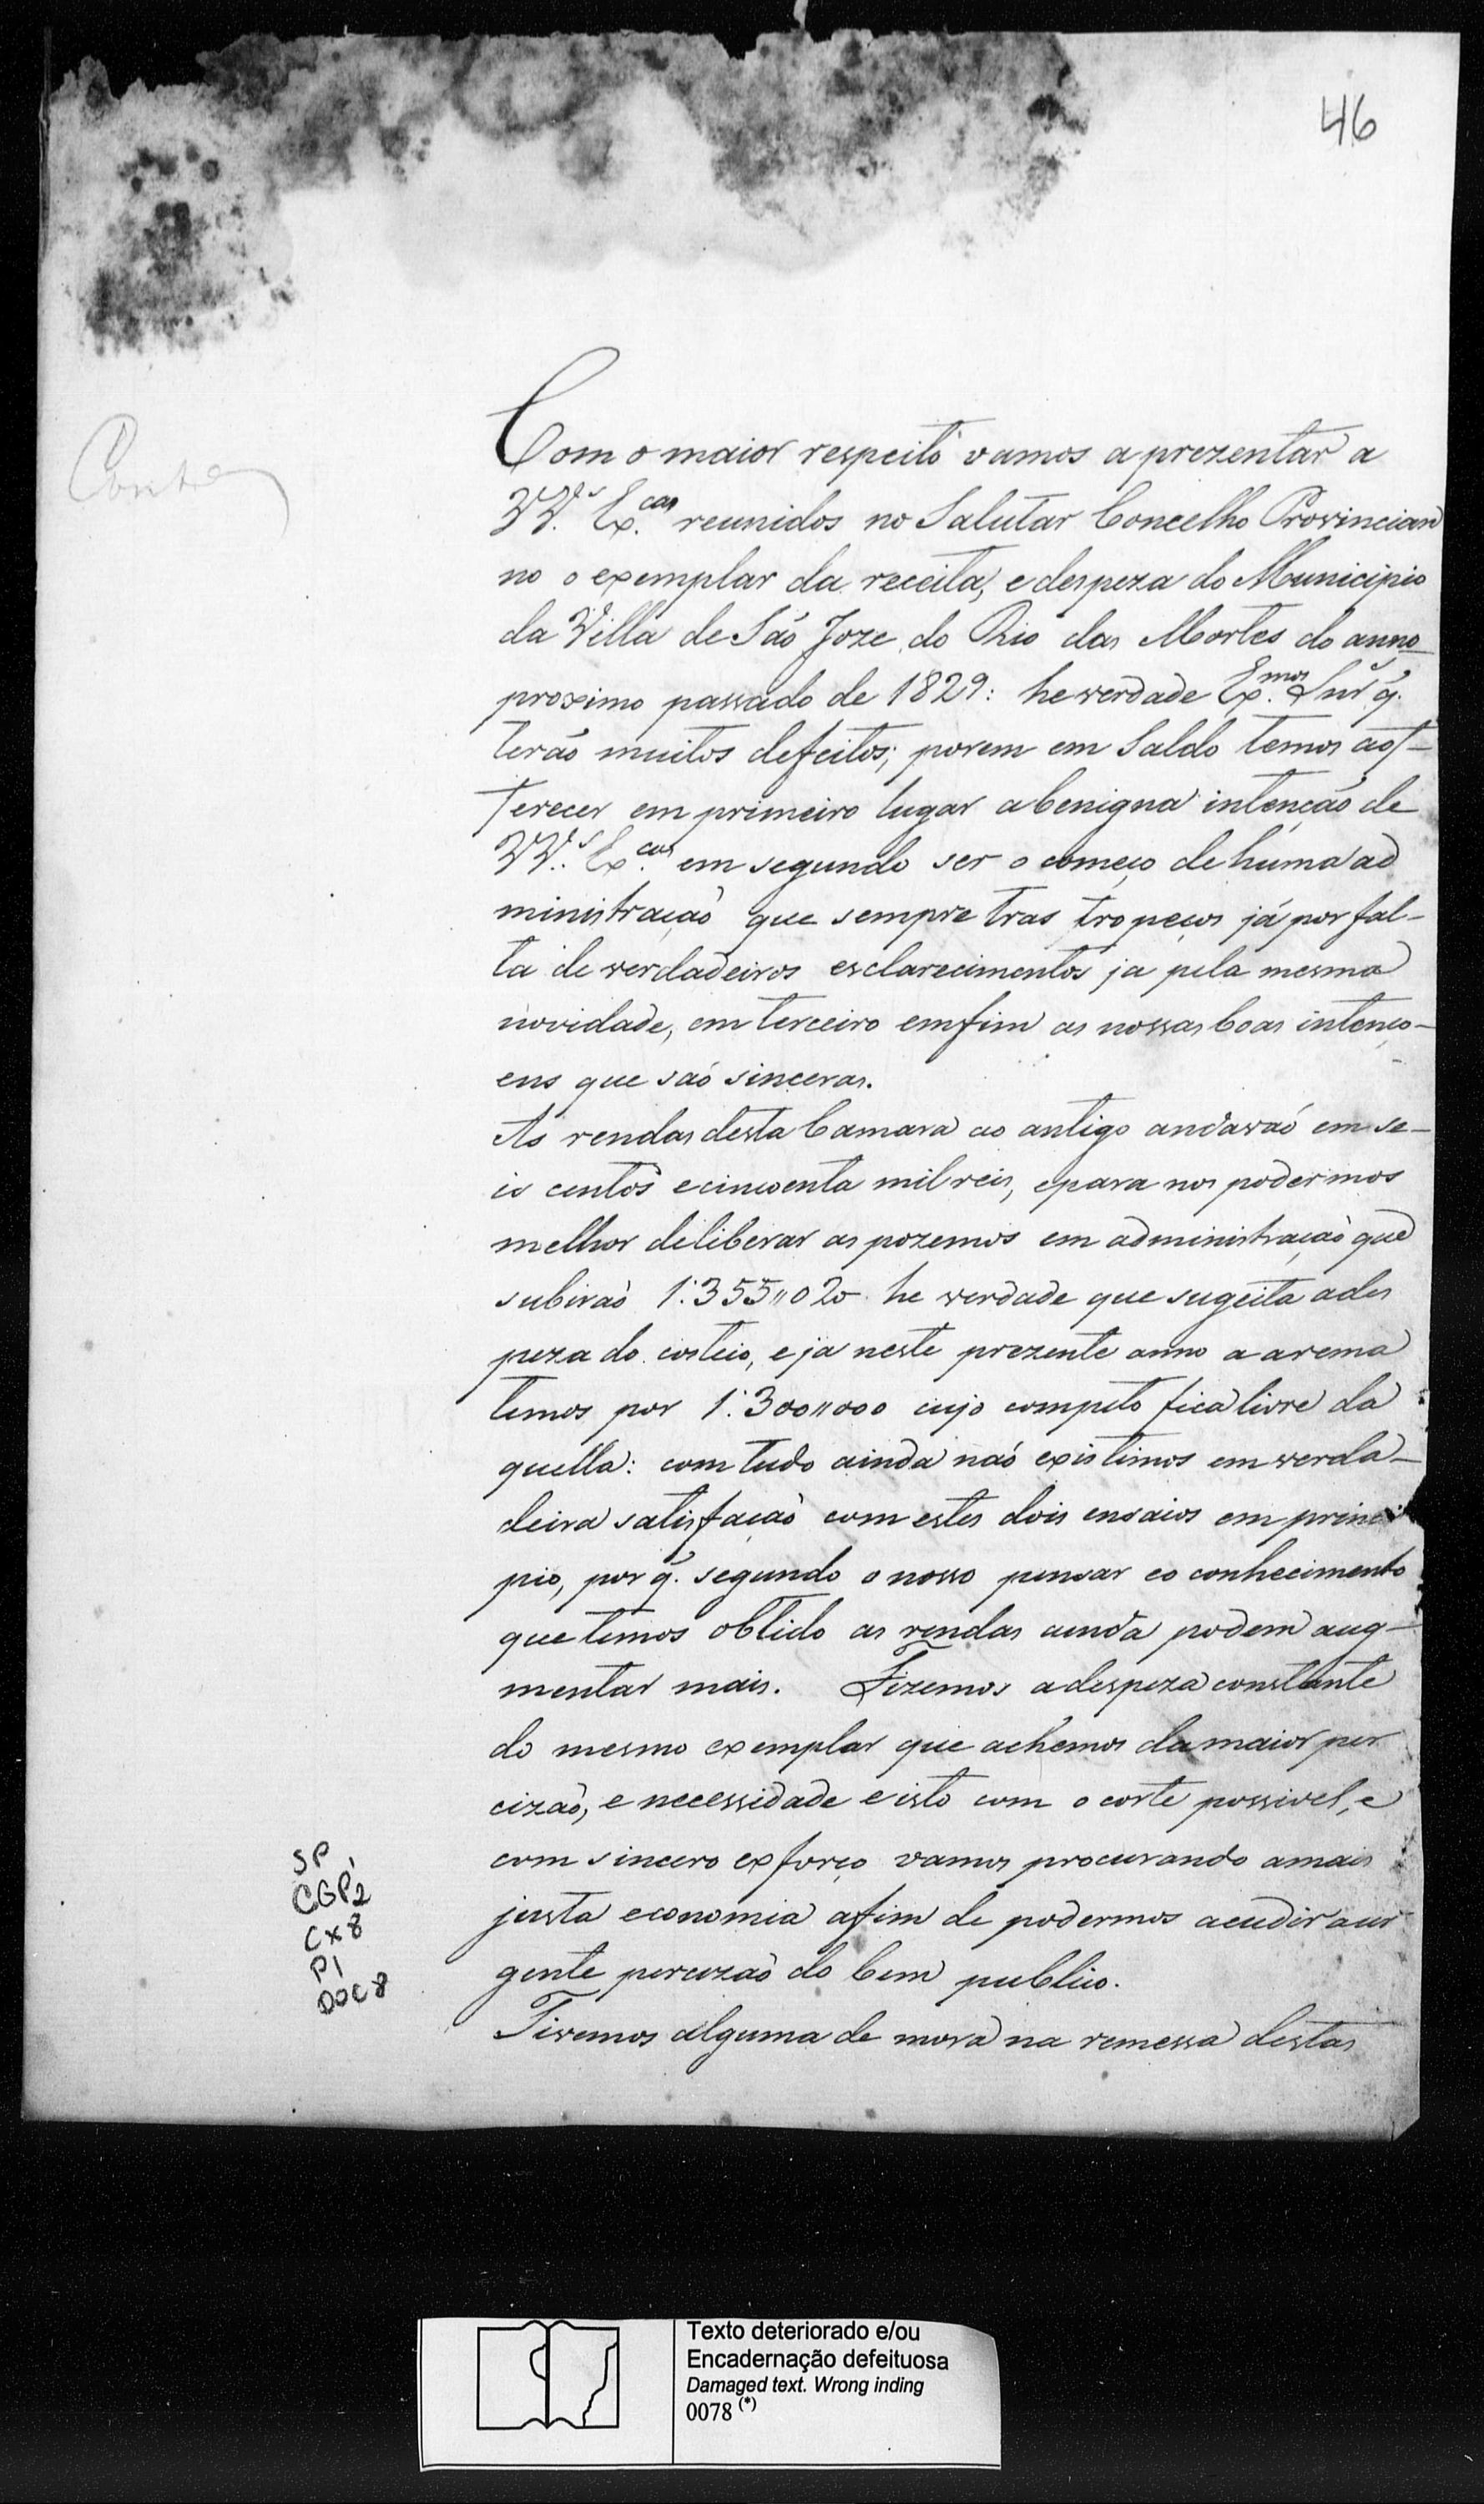 46
Conta
Com o maior respeito vamos aprezentar a
VV.s Ex.cas reunidos no Salutar Concelho Provincian
no o exemplar da receita, e despeza do Municipio
da Villa de São Joze do Rio das Mortes do anno
proximo passado de 1829: he verdade Ex.mos Snr.s q.
terão muitos defeitos; porem em Saldo temos aof-
ferecer em primeiro lugar abenigna intenção de
VV.s Ex.cas em segundo ser o começo de huma ad
ministração que sempre tras tropeços já por fal-
ta de verdadeiros esclarecimentos ja pela mesma
novidade, em terceiro emfim as nossas boas intenço-
ens que saõ sinceras.
As rendas desta Camara ao antigo andavaõ em se-
is centos ecincoenta mil reis, epara nos podermos
melhor deliberar as pozemos em administraçaõ que
subiraõ 1:355"020 he verdade que sugeita ades
peza do custeio, e ja neste prezente anno a arema
temos por 1:300"000 cujo computo fica livre da
quella: com tudo ainda naõ existimos em verda-
deira satisfaçaõ com estes dois ensaios em princi
pio, por q. segundo o nosso pensar eo conhecimento
que temos obtido as rendas ainda podem aug-
mentar mais. Fizemos adespeza constante
do mesmo exemplar que achemos da maior per
cizaõ, e necessidade e isto com o corte possivel, e
com sincero exforço vamos procurando amais
justa economia afim de podermos acudir aur
gente percizaõ do bem publico.
Tivemos alguma de mora na remessa destas
SP
CGP2
Cx8
P1
DOC8
Texto deteriorado e/ou
Encadernação defeituosa
Damaged text. Wrong inding
0078 (*)